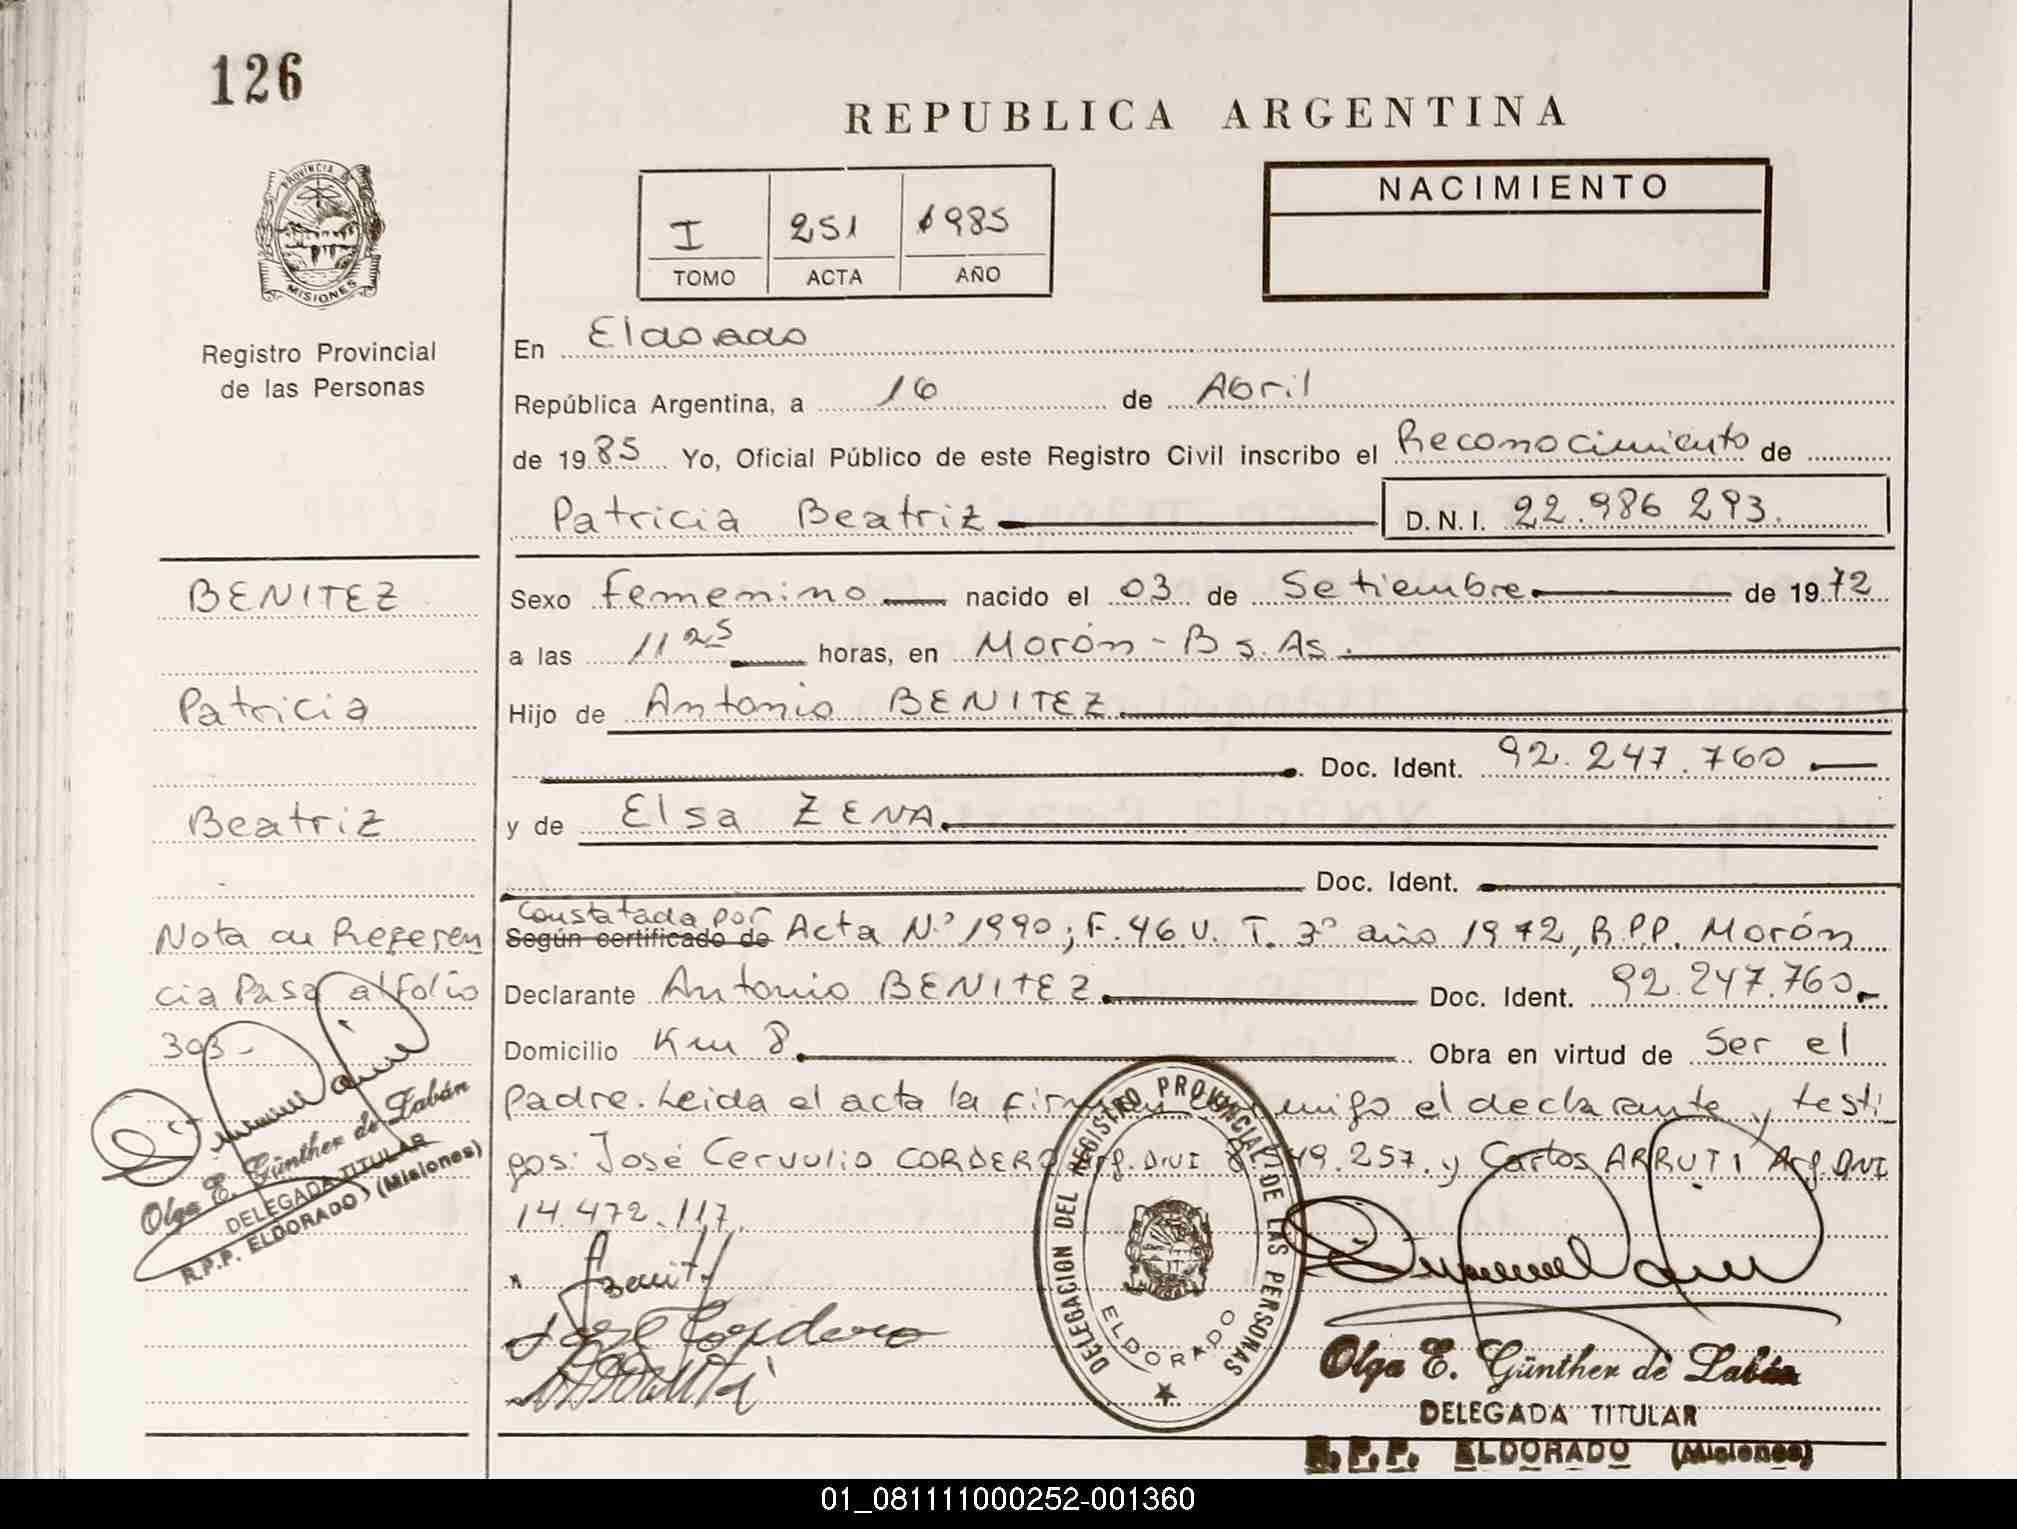 126
REPUBLICA ARGENTINA
PROVINCIA DE
MISIONES
Registro Provincial
de las Personas
I 251 1985
TOMO ACTA AÑO
NACIMIENTO
En Eldorado
República Argentina, a 16 de Abril
de 1985 Yo, Oficial Público de este Registro Civil inscribo el Reconocimiento de
Patricia Beatriz D.N.I. 22.986 293.
BENITEZ
Patricia
Beatriz
Nota de Referen
cia Pasa al folio
393-
Olga E. Günther de Labán
DELEGADA TITULAR
R.P.P. ELDORADO (Misiones)
Sexo Femenino nacido el 03 de Setiembre de 1972
a las 11 25 horas, en Morón - Bs. As.
Hijo de Antonio BENITEZ
Doc. Ident. 92.247.760
y de Elsa ZENA.
Doc. Ident.
Constatada por
Según certificado de Acta N.º 1990; F. 46 V. T. 3º año 1972, R.P.P. Morón
Declarante Antonio BENITEZ Doc. Ident. 92.247.760.-
Domicilio Km 8 Obra en virtud de Ser el
padre. Leida el acta la firman conmigo el declarante y testi
gos: José Cervulio CORDERO Arg. DNI 49.257. y Carlos ARRUTI Arg. DNI
14.472.117.
José Cordero
DELEGACION DEL REGISTRO PROVINCIAL DE LAS PERSONAS
ELDORADO
Olga E. Günther de Labán
DELEGADA TITULAR
R.P.P. ELDORADO (Misiones)
01_081111000252-001360